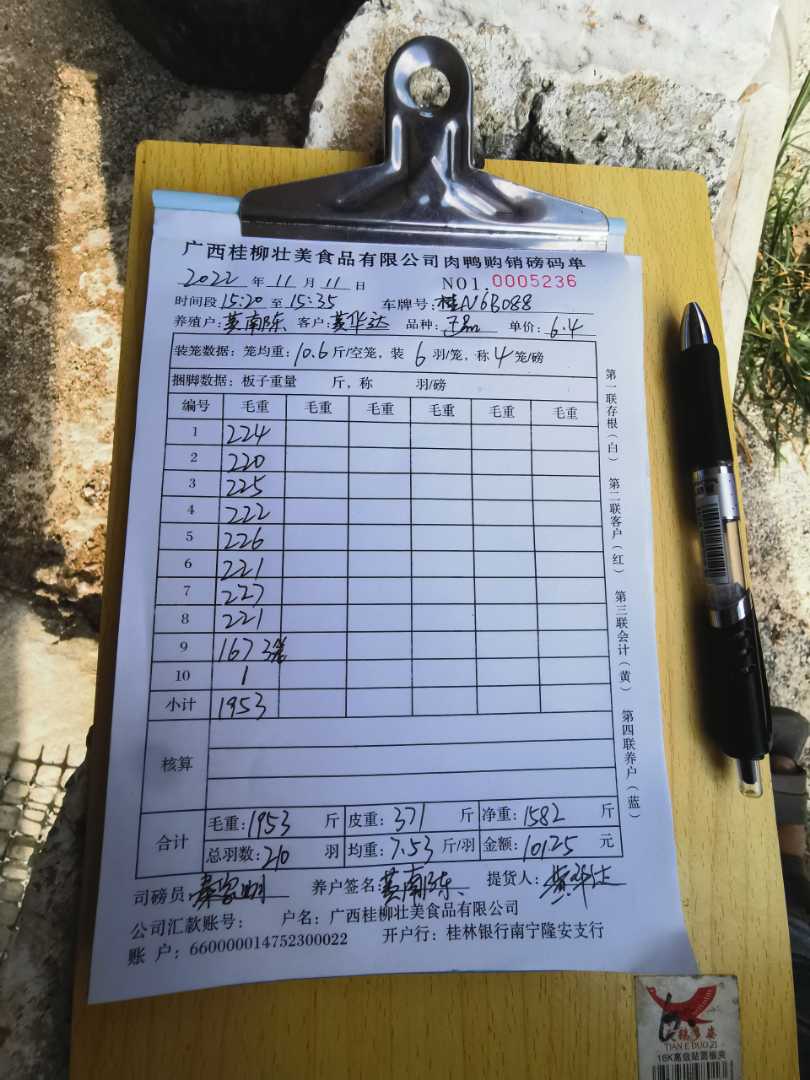 广西桂柳壮美食品有限公司肉鸭购销磅码单
2022 年 11 月 11 日 NO1.0005236
时间段 15:20 至 15:35 车牌号: 桂N6B088
养殖户: 黄南陈 客户: 黄华达 品种: 单价: 6.4
装笼数据: 笼均重: 10.6 斤/空笼, 装 6 羽/笼, 称 4 笼/磅
捆脚数据: 板子重量 斤, 称 羽/磅
编号 毛重 毛重 毛重 毛重 毛重 毛重
1 224
2 220
3 225
4 222
5 226
6 221
7 227
8 221
9 167 3笼
10 1
小计 1953
核算
合计 毛重: 1953 斤 皮重: 371 斤 净重: 1582 斤
总羽数: 210 羽 均重: 7.53 斤/羽 金额: 10125 元
司磅员 养户签名: 黄南陈 提货人: 黄华达
公司汇款账号: 户名: 广西桂柳壮美食品有限公司
账 户: 660000014752300022 开户行: 桂林银行南宁隆安支行
第一联存根(白) 第二联客户(红) 第三联会计(黄) 第四联养户(蓝)
TIAN E DUO ZI
16K高级贴面板夹